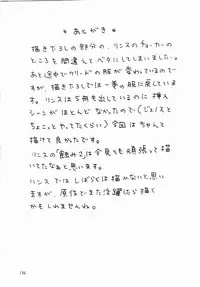 * あとがき *
描き下ろしの部分の、リンスのチョーカーの
ところを間違えてベタにしてしまいました…
あと途中でクリードの服が変わっているので
すが、描き下ろしでは一巻の服に戻しています。
リンスは5冊も出しているのに挿入
シーンがほとんどなかったので(ジェノスと
ちょこっとやってたくらい)今回はちゃんと
描けて良かったです。
リンスの「蝕み2」は今見ても頑張って描
いてたなぁと思います。
リンスではしばらくは描かないと思い
ますが、原作でまた活躍したら描く
かもしれませんね。